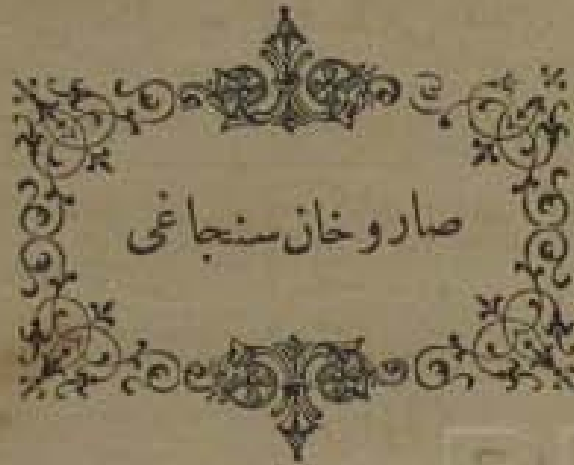 صاروخان سنجاغی